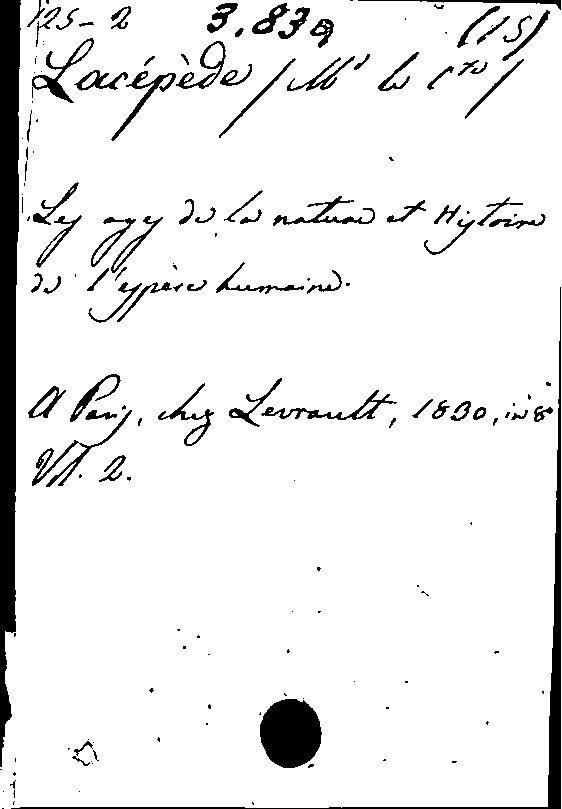 125-2 3.839 (15)
Lacépède / Mr le Cte /
Les ages de la nature et Histoire
de l'espèce humaine.
A Paris, chez Levrault, 1830, in 8°
Vol. 2.